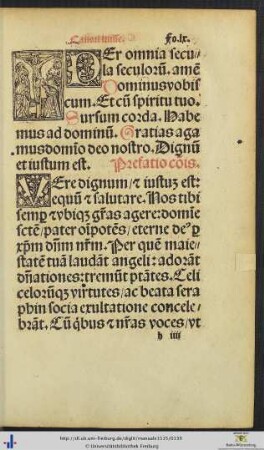 Canon misse. Fo.lx.
Per omnia secu
la seculorū. amē
Dominus vobis
cum. Et cū spiritu tuo.
Sursum corda. Habe
mus ad dominū. Gratias aga
mus domīo deo nostro. Dignū
et iustum est. Prefatio cōis.
Vere dignum / et iustuz est:
equū & salutare. Nos tibi
semp & vbiqz grās agere: domīe
sctē / pater oīpotēs / eterne de9 p
xpm dnm nrm. Per quē maie
statē tuā laudāt angeli: adorāt
dnationes: tremūt ptātes. Celi
celorūqz virtutes / ac beata sera
phin socia exultatione concele
brāt. Cū qbus & nras voces / vt
h iiij
http://dl.ub.uni-freiburg.de/diglit/
© Universitätsbibliothek Freiburg